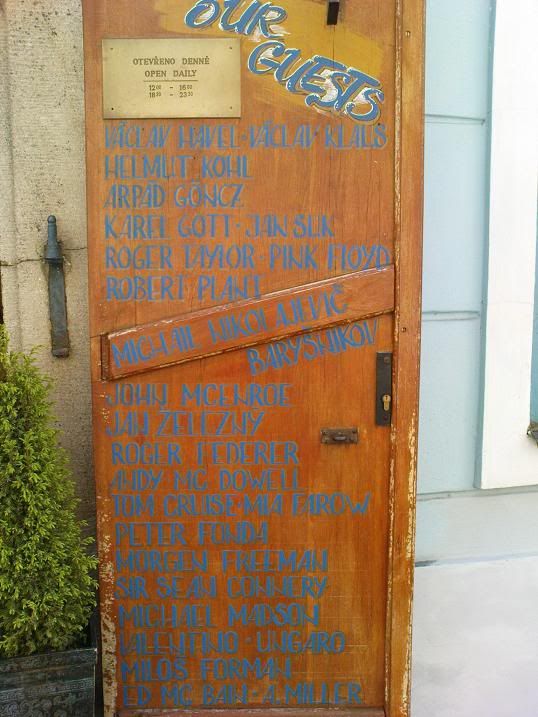 OUR
GUESTS
OTEVŘENO DENNĚ
OPEN DAILY
12 00 - 16 00
18 30 - 23 30
VÁCLAV HAVEL · VÁCLAV KLAUS
HELMUT KOHL
ARPÁD GÖNCZ
KAREL GOTT · JAN SLK
ROGER TAYLOR · PINK FLOYD
ROBERT PLANT
MICHAIL NIKOLAJEVIČ
BARYŠNIKOV
JOHN MCENROE
JAN ŽELEZNÝ
ROGER FEDERER
ANDY MC DOWELL
TOM CRUISE · MIA FAROW
PETER FONDA
MORGEN FREEMAN
SIR SEAN CONNERY
MICHAEL MADSON
VALENTINO · UNGARO
MILOŠ FORMAN
ED MC BAIN · A. MILLER